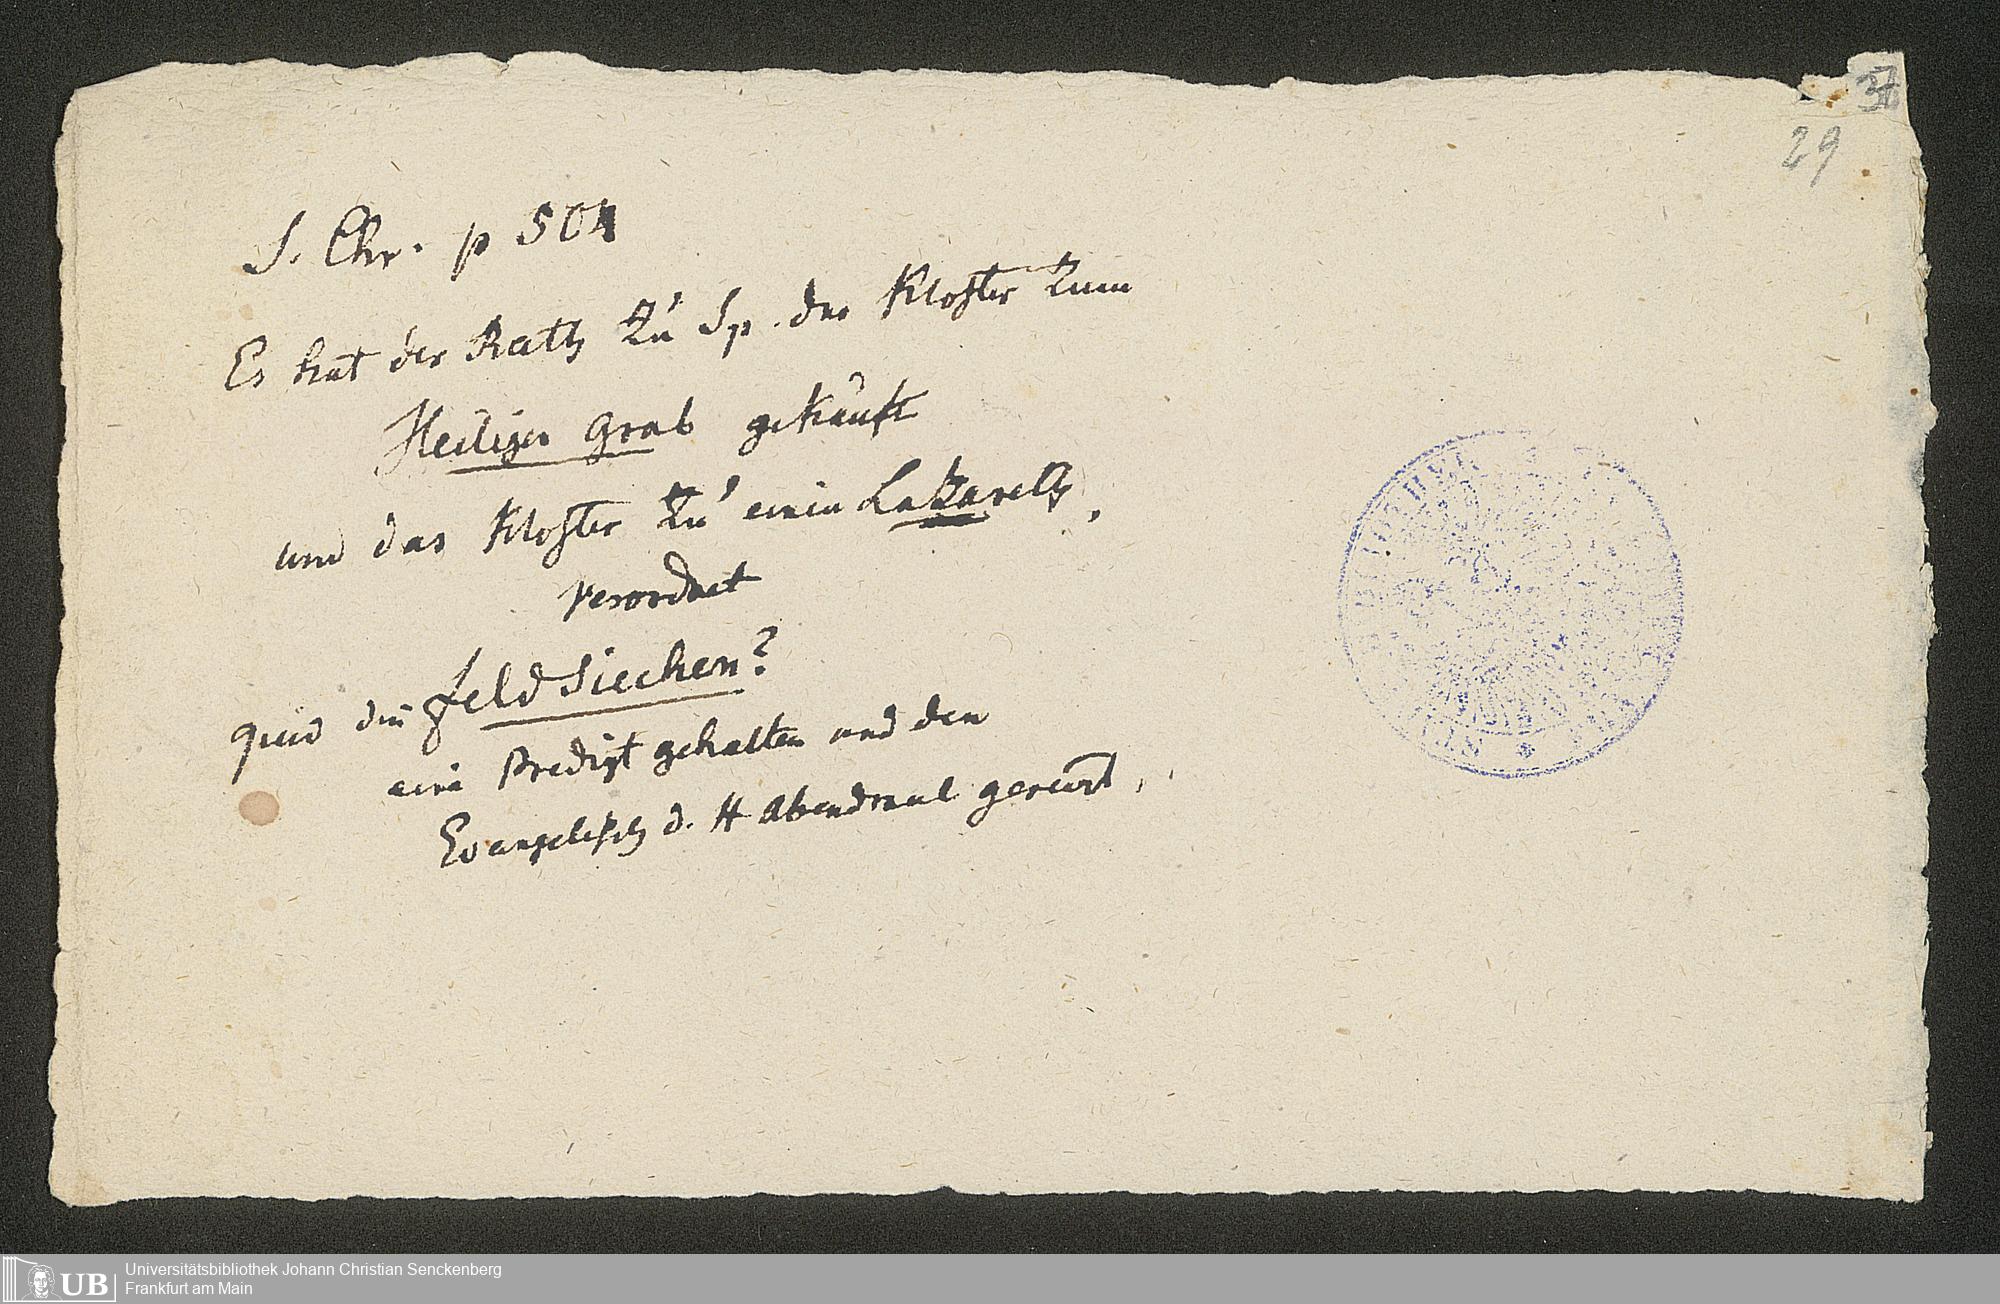 37
29
S. Chr. p 504
Es hat der Rath zu Sp. das Kloster zum
Heiligen Grab gekauft
und das Kloster zu einem Lazareth,
verordnet
quid den feldsiechen?
eine Predigt gehalten und den
Evangelisch d. H Abendmal gereicht,
Universitätsbibliothek Johann Christian Senckenberg
Frankfurt am Main
UB